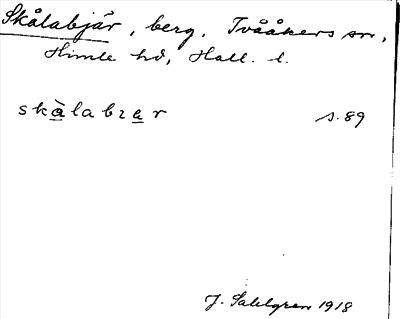 Skålabjär, berg, Tvååkers sn,
Himle hd, Hall. l.
skàlabrar s. 89
J. Sahlgren 1918